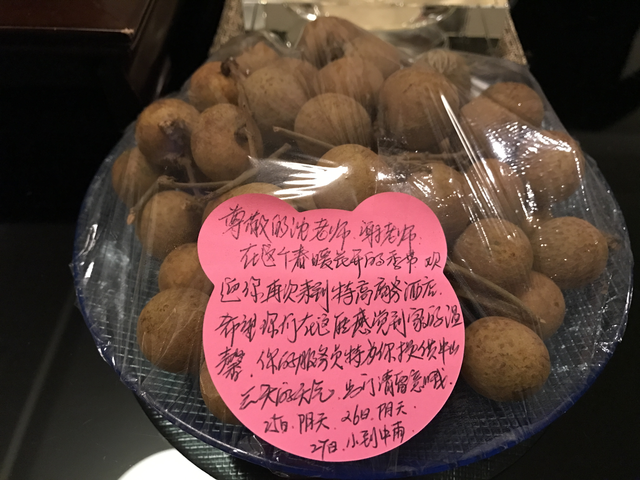 尊敬的沈老师、谢老师：
在这个春暖花开的季节，欢
迎你再次来到特高商务酒店。
希望你们在这里感觉到家的温
馨。你的服务员特为你提供中山
三天的天气，出门请留意哦。
25日．阴天 26日．阴天
27日．小到中雨